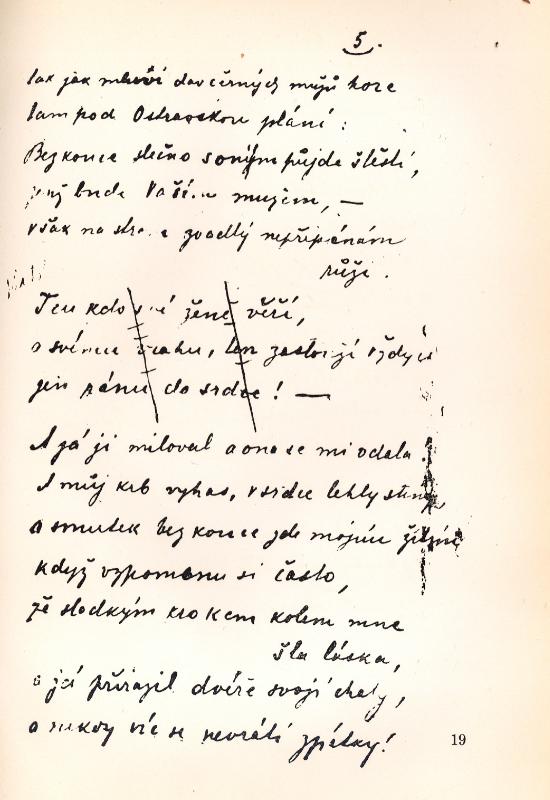 5.
tak jak mluví davčěrných mužů hoze
tam pod Ostravskou plání:
Bez konce slečno s oným půjde štěstí,
jenž bude Vaším mužem, —
však na
zvadlý nepřipínám
růži.
Ten kdo své ženě věří,
a svému vrahu, ten zaslouží vždycky
jen ránu do srdce! —
A já ji miloval a ona se mi vdala.
A můj krb vyhas, v srdce lehly stíny
a smutek bez konce jde mojím žitím,
když vzpomenu si často,
že sladkým krokem kolem mne
šla láska,
a já přirazil dvéře svojí chaty,
a nikdy víc se nevrátí zpátky!
19